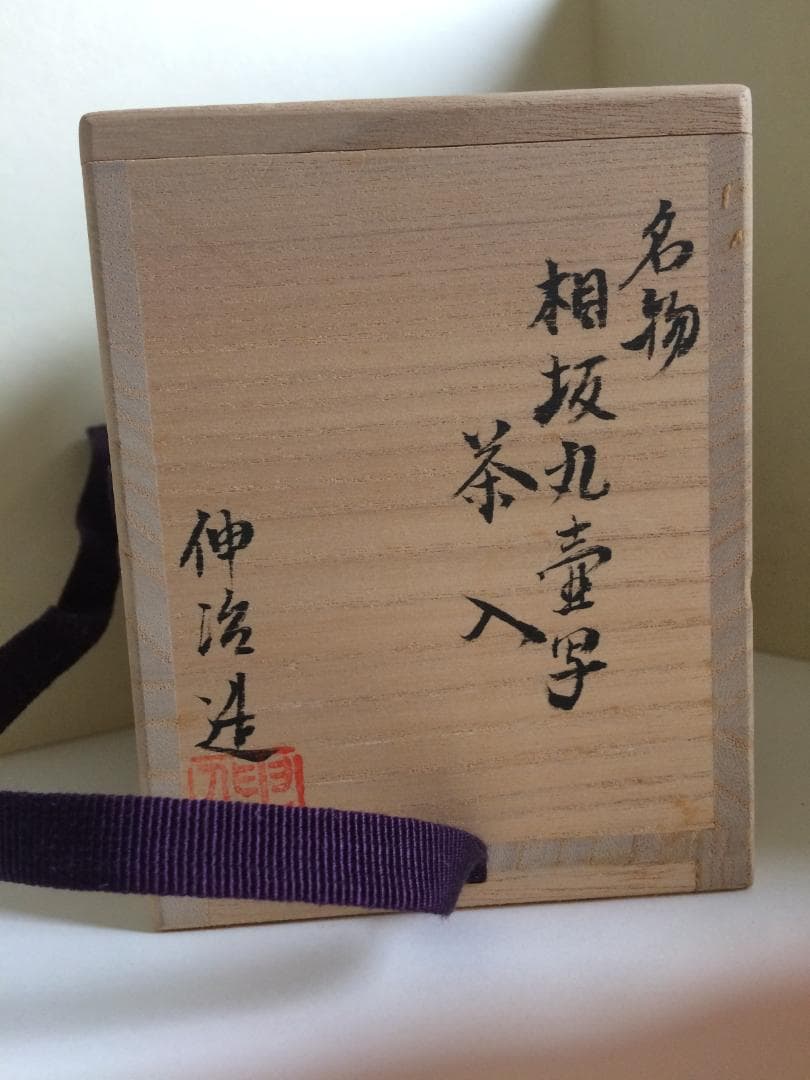 名物
相坂丸壷写
茶入
伸治造